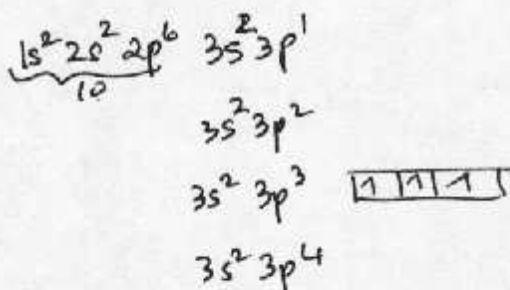 1s² 2s² 2p⁶ 3s² 3p¹
10
3s² 3p²
3s² 3p³ 1 1 1
3s² 3p⁴